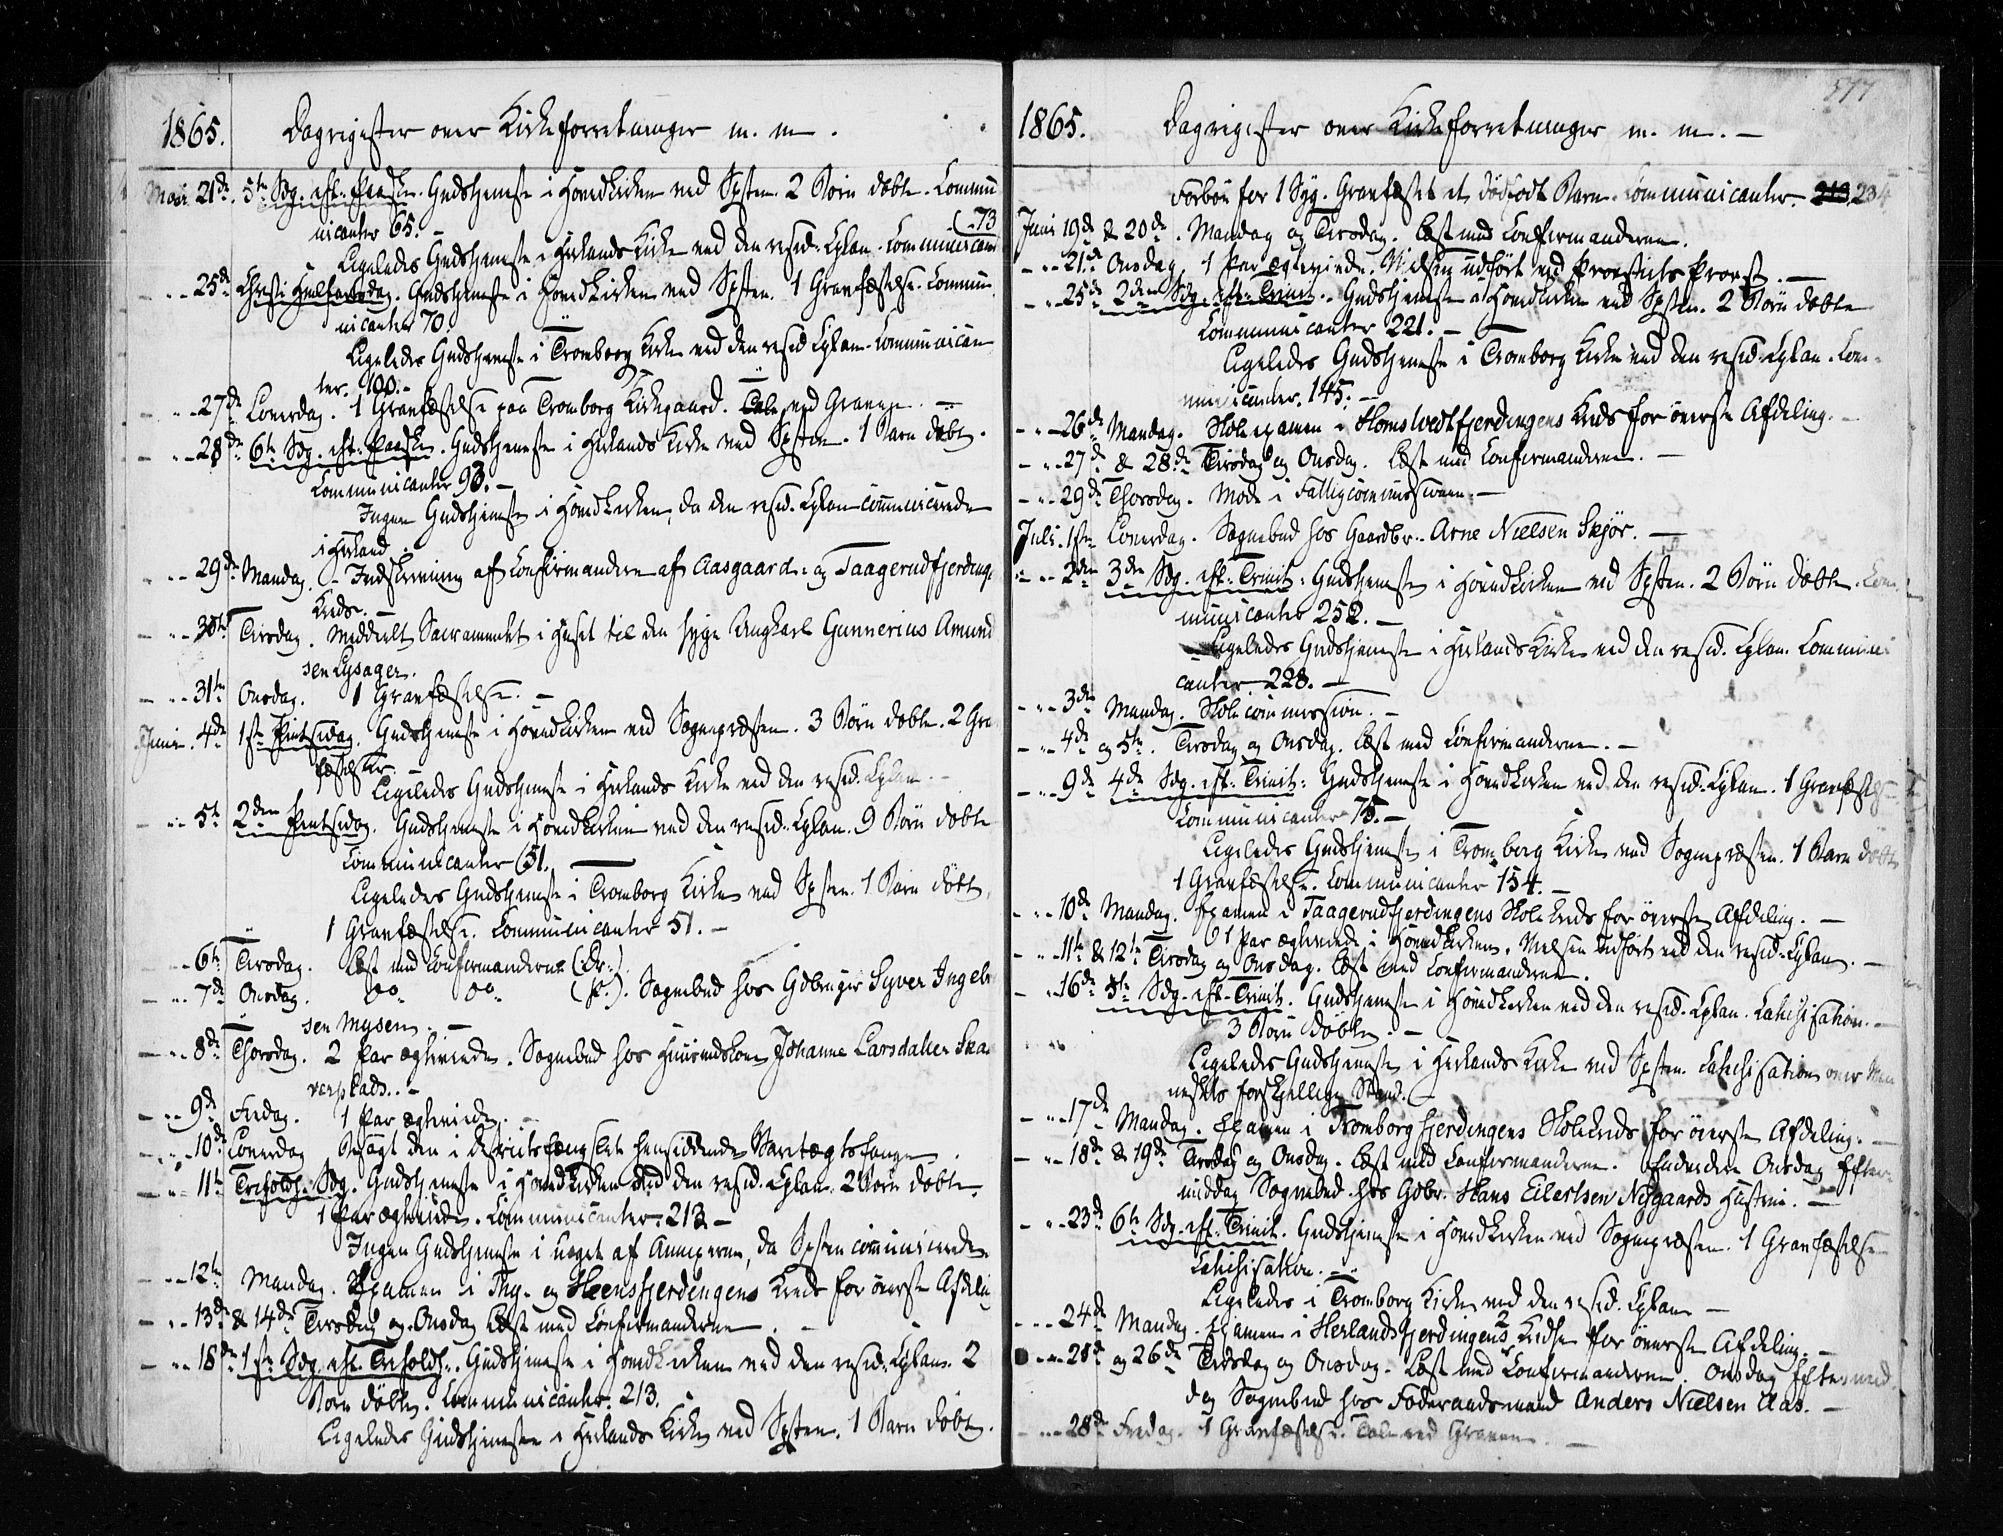 1865. Dagregister over Kirkeforretninger m. m.
Mai 21de 5te Sdg. eft. Paaske. Gudstjeneste i Hovedkirken ved Spsten. 2 Børn døbte. Commu
nicanter 65. –
(73
Ligeledes Gudstjeneste i Herlands Kirke ved den resid. Cplan. Communicant
– „ – 25de Christi Himmelfartsdag. Gudstjeneste i Hovedkirken ved Spsten. 1 Gravfæstelse. Commu-
nicanter 70.
Ligeledes Gudstjeneste i Tromborg Kirke ved den resid. Cplan. Communican
ter. 100. –
– „ – 27de Løverdag. 1 Gravfæstelse paa Tromborg Kirkegaard. Tale ved Graven. –
– „ – 28de 6te Sdg. eft. Paaske. Gudstjeneste i Herlands Kirke ved Spsten. 1 Barn døbt.
Communicanter 93. –
Ingen Gudstjeneste i Hovedkirken, da den resid. Cplan communicerede
i Herland.
– „ – 29de Mandag. – Indskrivning af Confirmandere af Aasgaard- og Taagerudfjerding
Kreds. –
– „ – 30te Tirsdag. Meddeelt Sacramentet i Huset til den syge Ungkarl Gunnerius Amund
sen Lysager.
– „ – 31te Onsdag. 1 Gravfæstelse. –
Juni 4de 1ste Pintsedag. Gudstjeneste i Hovedkirken ved Sognepræsten. 3 Børn døbte. 2 Gra
fæstelser. –
Ligeledes Gudstjeneste i Herlands Kirke ved den resid. Cplan. –
– „ – 5te 2den Pintsedag. Gudstjeneste i Hovedkirken ved den resid. Cplan. 9 Børn døbte
Communicanter 51. –
Ligeledes Gudstjeneste i Tromborg Kirke ved Spsten. 1 Barn døbt.
1 Gravfæstelse. Communicanter 51. –
– „ – 6te Tirsdag. Læst med Confirmanderne (Dr.)
– „ – 7de Onsdag. Do Do (P.). Sognebud hos Gdbruger Syver Ingebr
sen Mysen. –
– „ – 8de Thorsdag. 2 Par ægteviede. Sognebud hos Huusmdskone Johanne Larsdatter Ska
verplads. –
– „ – 9de Fredag. 1 Par ægteviede. –
– „ – 10de Løverdag Besøgt den i Districtsfængslet hensiddende Varetægtsfange.
– „ – 11te Trefoldh. Sdg. Gudstjeneste i Hovedkirken ved den resid. Cplan. 2 Børn døbte.
1 Par ægteviede. Communicanter. 213 –
Ingen Gudstjeneste i noget af Annexerne, da Spsten communicerede.
– „ – 12te Mandag. Examen i Thy- og Heensfjerdingens Kreds for øverste Afdeling
– „ – 13de & 14de Tirsdag og Onsdag Læst med Confirmanderne. –
– „ – 18de 1ste Sdg. eft. Trefoldh. Gudstjeneste i Hovedkirken ved den resid. Cplan. 2
Børn døbte. Communicanter. 213.
Ligeledes Gudstjeneste i Herlands Kirke ved Spsten. 1 Barn døbt.
577
1865. Dagregister over Kirkeforretninger m. m. –
Forbøn for 1 Syg. Gravfæstet et dødfødt Barn. Communicanter. 213. 234
Juni 19de & 20de. Mandag og Tirsdag. Læst med Confirmanderne.
– „ – 21de Onsdag 1 Par ægteviede. Vielsen udført ved Provstiets Provst. –
– „ – 25de 2den Sdg. eft. Trinit. Gudstjeneste i Hovedkirken ved Spsten. 2 Børn døbte
Communicanter 221. –
Ligeledes Gudstjeneste i Tromborg Kirke ved den resid. Cplan. Com-
municanter. 145. –
– „ – 26de Mandag. Skoleexamen i Homstvedtfjerdingens Kreds for øverste Afdeling. –
– „ – 27de & 28de Tirsdag og Onsdag. Læst med Confirmanderne. –
– „ – 29de Thorsdag. Møde i Fattigcommissionen. –
Juli. 1ste Løverdag. Sognebud hos Gaardbr. Arne Nielsen Skjør. –
– „ – 2den 3die Sdg. eft. Trinit: Gudstjeneste i Hovedkirken ved Spsten. 2 Børn døbte. Com
municanter 252. –
Ligeledes Gudstjeneste i Herlands Kirke ved den resid. Cplan. Communi
canter. 228. –
– „ – 3die Mandag. Skolecommission. –
– „ – 4de og 5te. Tirsdag og Onsdag. Læst med Confirmanderne. –
– „ – 9de 4de Sdg. eft. Trinit: Gudstjeneste i Hovedkirken ved den resid. Cplan. 1 Gravfæstelse
Communicanter 75. –
Ligeledes Gudstjeneste i Tromborg Kirke ved Sognepræsten. 1 Barn døbt
1 Gravfæstelse. Communicanter 154. –
– „ – 10de Mandag. Examen i Taagerudfjerdingens Skolekreds for øverste Afdeling. –
1 Par ægteviede i Hovedkirken. Vielsen udført ved den resid. Cplan. –
– „ – 11te & 12te Tirsdag og Onsdag. Læst med Confirmanderne.
– „ – 16de 5te Sdg. eft. Trinit. Gudstjeneste i Hovedkirken ved den resid. Cplan. Catechisation. –
3 Børn døbte. –
Ligeledes Gudstjeneste i Herlands Kirke ved Spsten. Catechisation over Men
neskets forskjellige Stand. –
– „ – 17de Mandag. Examen i Tromborgfjerdingens Skolekreds for øverste Afdeling. –
– „ – 18de & 19de Tirsdag og Onsdag. Læst med Confirmanderne. Endvidere Onsdag Efter-
middag Sognebud hos Gdbr. Hans Eilertsen Nygaards Hustru. –
– „ – 23de 6te Sdg. eft. Trinit. Gudstjeneste i Hovedkirken ved Sognepræsten. 1 Gravfæstelse
Catechisation. –
Ligeledes i Tromborg Kirke ved den resid. Cplan –
– „ – 24de Mandag. Examen i Herlandsfjerdingens 2 Kredse for øverste Afdeling. –
– „ – 25de og 26de Tirsdag og Onsdag. Læst med Confirmanderne. Onsdag Eftermid
dag Sognebud hos Føderaadsmand Anders Nielsen Aas. –
– „ – 28de Fredag. 1 Gravfæstelse. Tale ved Graven. –